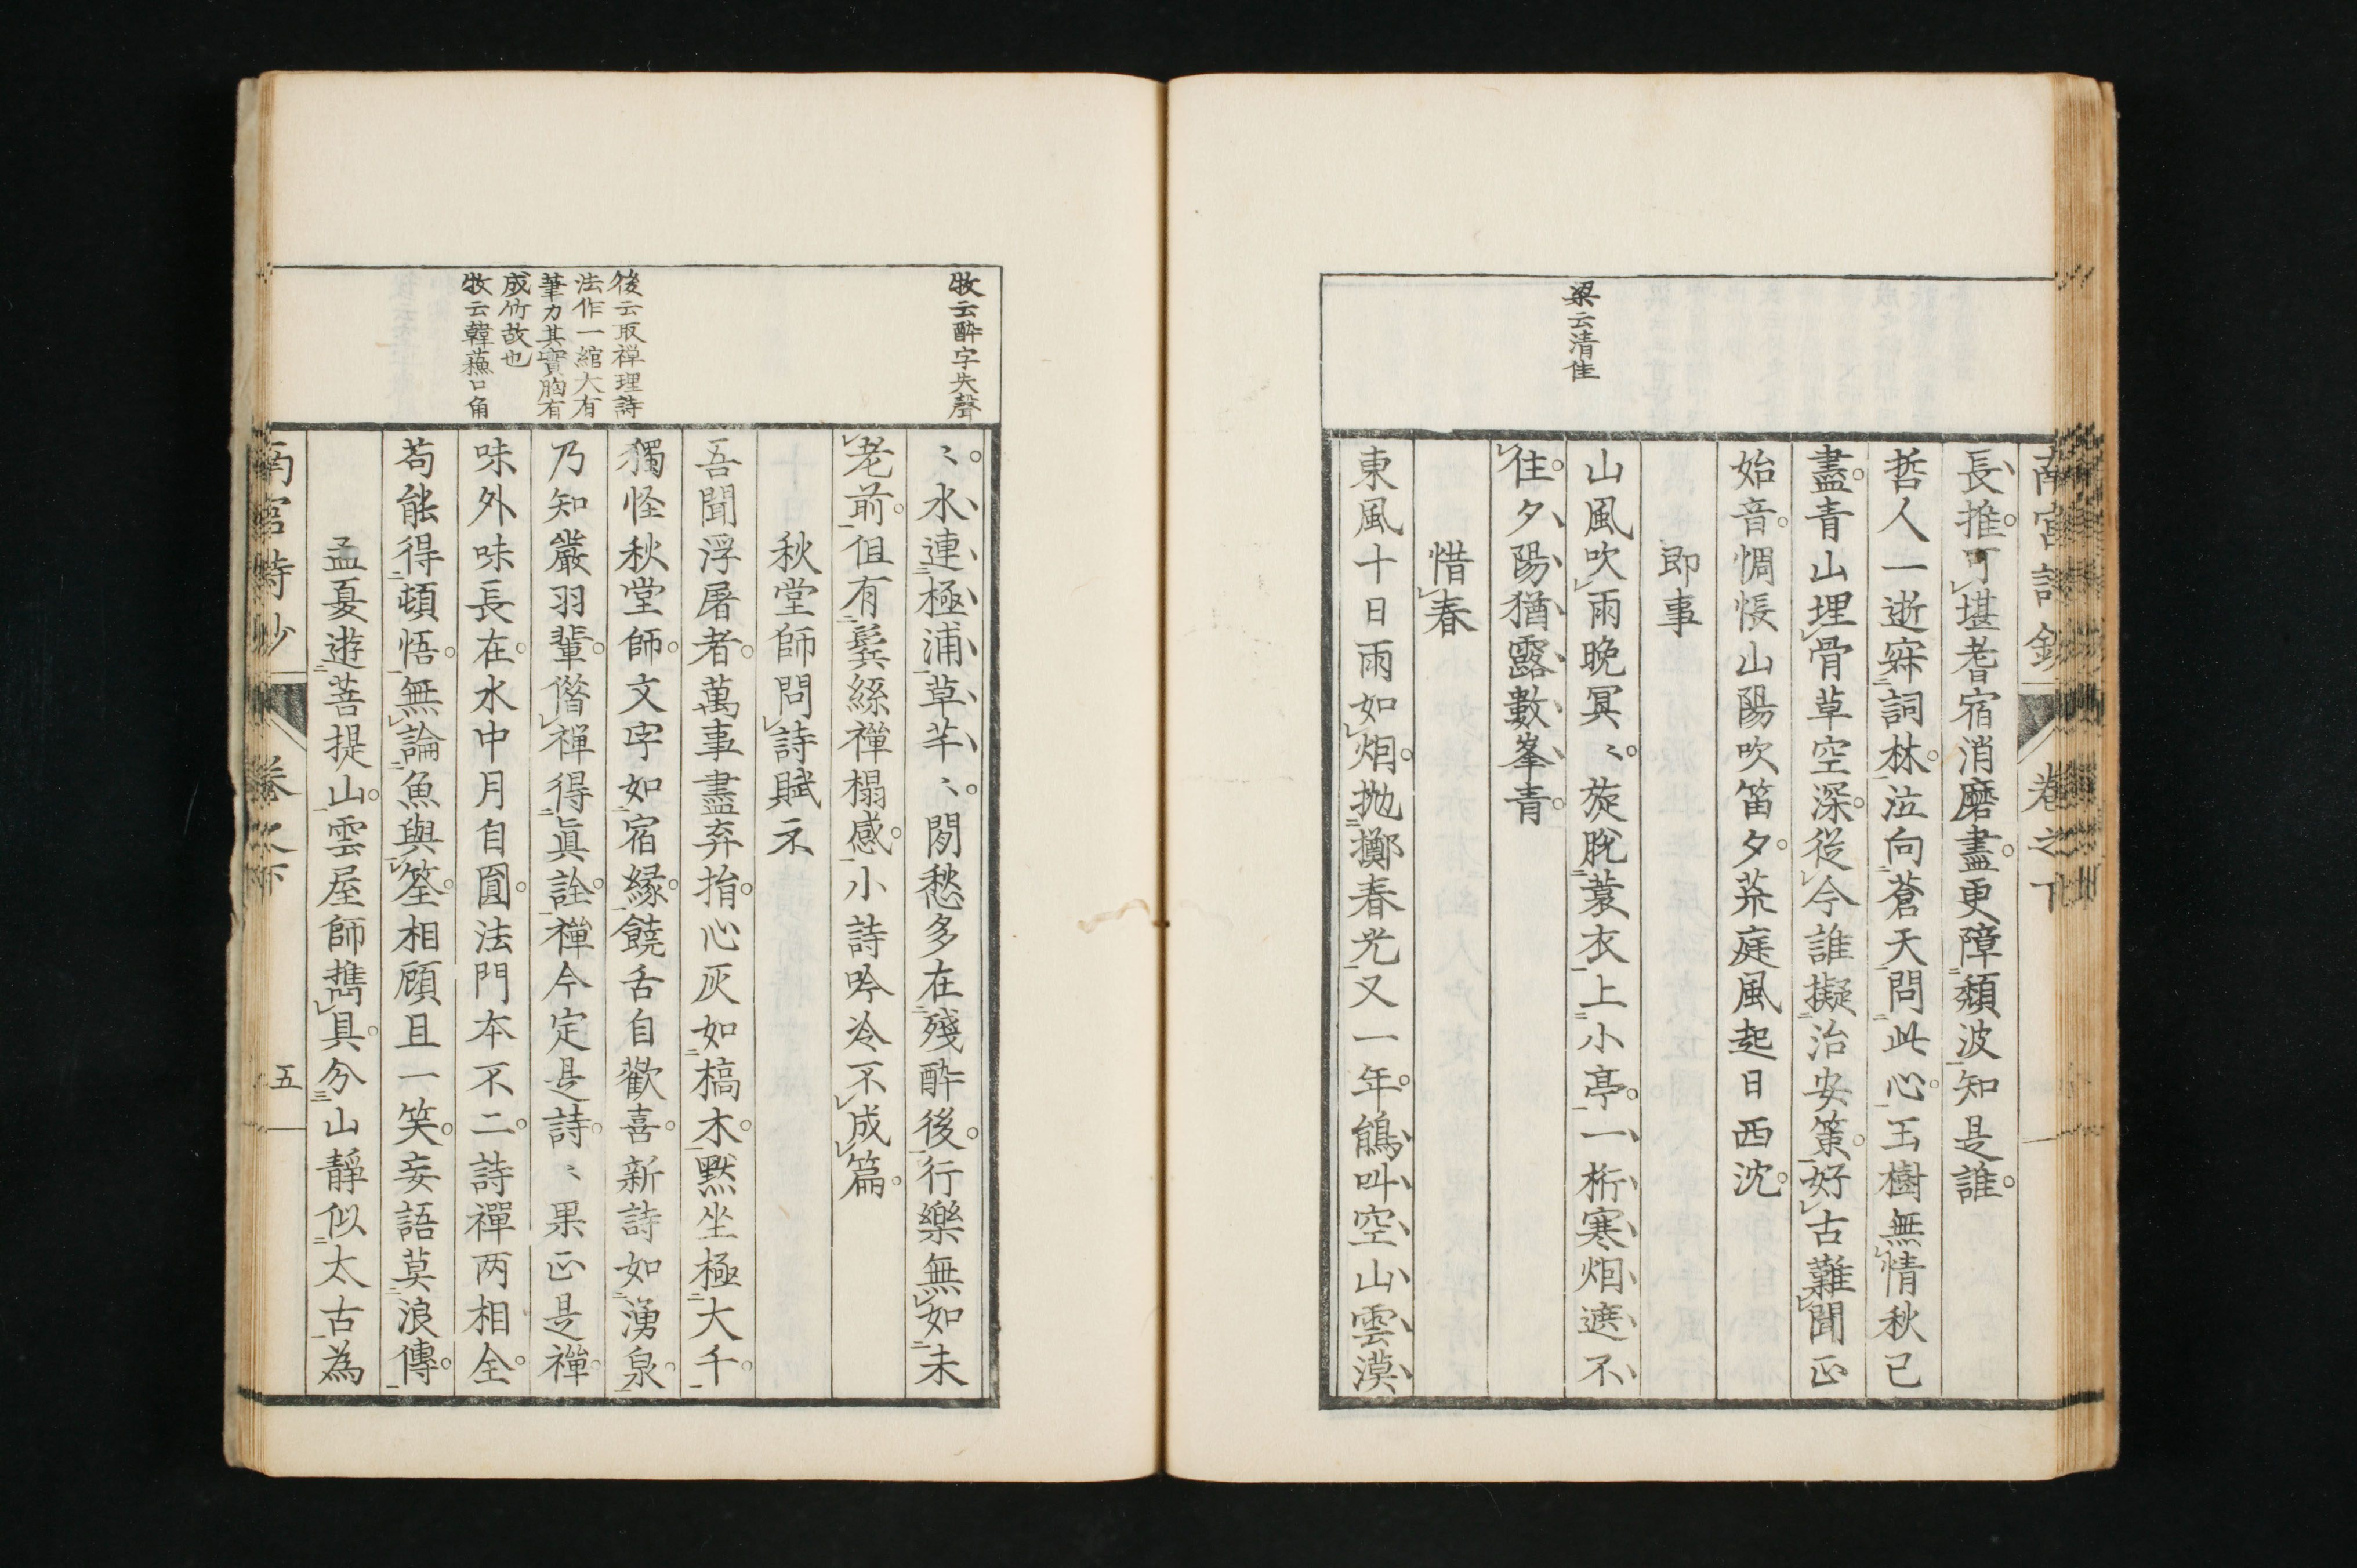 南宮詩鈔 卷之下
長推可堪耆宿消磨盡更障頽波知是誰
哲人一逝寂詞林泣向蒼天問此心玉樹無情秋已
盡青山埋骨草空深從今誰擬治安策好古難聞正
始音惆悵山陽吹笛夕荒庭風起日西沈
即事
梁云清佳
山風吹雨晚冥〻旋脫蓑衣上小亭一桁寒烟遮不
往夕陽猶露數峯青
惜春
東風十日雨如烟拋擲春光又一年鵑叫空山雲漠
牧云酔字失聲
〻水連極浦草芊〻閒愁多在殘酔後行樂無如未
老前但有鬓絲禪榻感小詩吟冷不成篇
秋堂師問詩賦示
吾聞浮屠者萬事盡弃捐心灰如槁木默坐極大千
後云取禅理詩
法作一綰大有
筆力其實胸有
成竹故也
牧云韓蘓口角
獨怪秋堂師文字如宿緣饒舌自歡喜新詩如湧泉
乃知嚴羽輩偕禪得眞詮禪今定是詩〻果正是禪
味外味長在水中月自圓法門本不二詩禪两相全
苟能得頓悟無論魚與筌相顧且一笑妄語莫浪傳
孟夏遊菩提山雲屋師携具分山靜似太古為
南宮詩鈔 卷之下 五